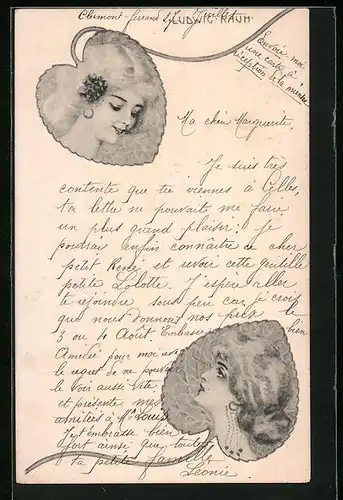 Clermont-Ferrand 27 Juillet
LUDWIG RAUH
Envoie-moi
une carte à
réception de la mienne
Ma chère Marguerite,
Je suis très
contente que tu viennes à
ta lettre ne pouvait me faire
un plus grand plaisir; je
pourrai enfin connaître ce cher
petit René et revoir cette gentille
petite Lolotte. J'espère aller
te rejoindre sous peu car je crois
que nous donnons nos prix le
3 ou 4 Août. Embrasse bien
Amédée pour moi
le regret de ne pouvoir
le voir aussi vite
et présente mes
amitiés à Mr Louis
Je t'embrasse bien
fort ainsi que toute
ta petite famille
Léonie.